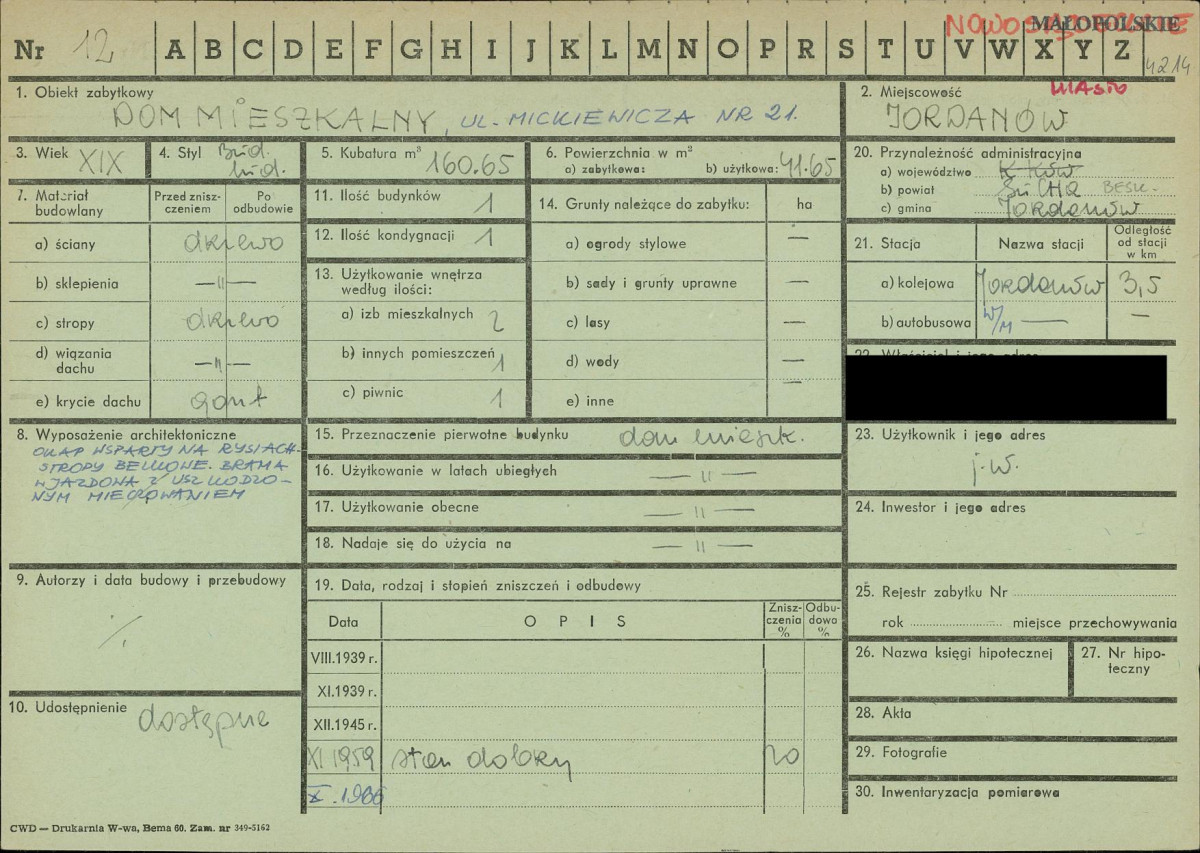 MAŁOPOLSKIE
Nr 12 A B C D E F G H I J K L M N O P R S T U V W X Y Z
4214
1. Obiekt zabytkowy
DOM MIESZKALNY, UL. MICKIEWICZA NR 21.
2. Miejscowość
MIASTO
JORDANÓW
3. Wiek XIX
4. Styl Bud.
lud.
5. Kubatura m³ 160.65
6. Powierzchnia w m²
a) zabytkowa: b) użytkowa: 41.65
20. Przynależność administracyjna
a) województwo
b) powiat SUCHA BESK.
c) gmina Jordanów
7. Materiał budowlany
Przed zniszczeniem
Po odbudowie
a) ściany drzewo
b) sklepienia —"—
c) stropy drzewo
d) wiązania dachu —"—
e) krycie dachu gont
11. Ilość budynków 1
12. Ilość kondygnacji 1
13. Użytkowanie wnętrza
według ilości:
a) izb mieszkalnych 2
b) innych pomieszczeń 1
c) piwnic 1
14. Grunty należące do zabytku: ha
a) ogrody stylowe —
b) sady i grunty uprawne —
c) lasy —
d) wody —
e) inne —
21. Stacja
Nazwa stacji
Odległość od stacji w km
a) kolejowa Jordanów 3,5
b) autobusowa W/M — —
8. Wyposażenie architektoniczne
OKAP WSPARTY NA RYSIACH.
STROPY BELKOWE. BRAMA
WJAZDOWA Z USZKODZO-
NYM MIECZOWANIEM
15. Przeznaczenie pierwotne budynku dom mieszk.
16. Użytkowanie w latach ubiegłych —"—
17. Użytkowanie obecne —"—
18. Nadaje się do użycia na —"—
23. Użytkownik i jego adres
j.w.
24. Inwestor i jego adres
9. Autorzy i data budowy i przebudowy
10. Udostępnienie dostępne
19. Data, rodzaj i stopień zniszczeń i odbudowy
Data
OPIS
Zniszczenia %
Odbudowa %
VIII.1939 r.
XI.1939 r.
XII.1945 r.
XI 1959 stan dobry 20
X. 1966
25. Rejestr zabytku Nr
rok miejsce przechowywania
26. Nazwa księgi hipotecznej
27. Nr hipoteczny
28. Akta
29. Fotografie
30. Inwentaryzacja pomiarowa
CWD — Drukarnia W-wa, Bema 60. Zam. nr 349-5162